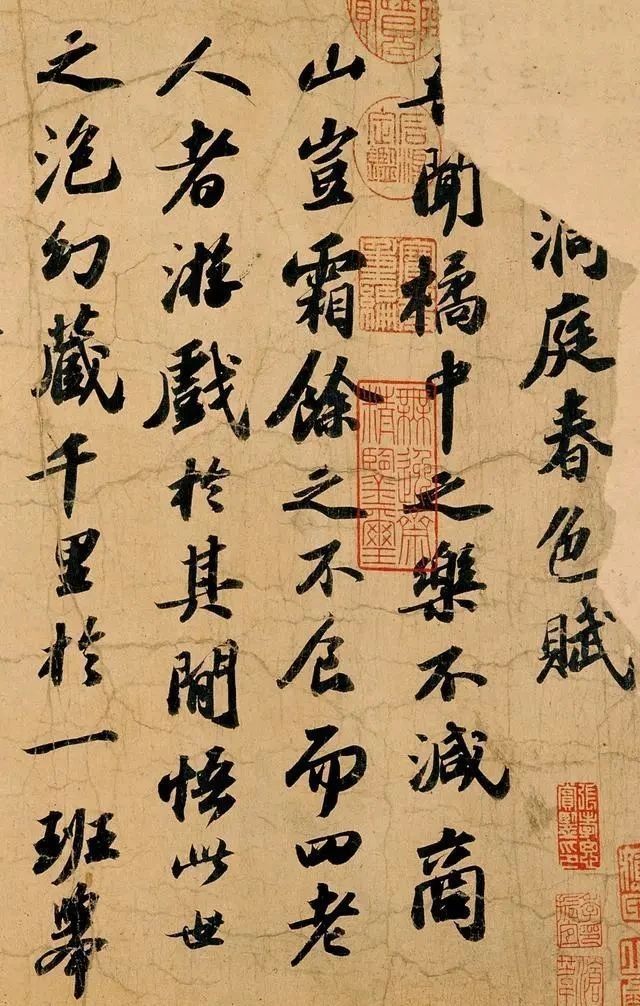 洞庭春色賦
聞橘中之樂不減商
山豈霜餘之不食而四老
人者游戲於其間悟此世
之泡幻藏千里於一班舉